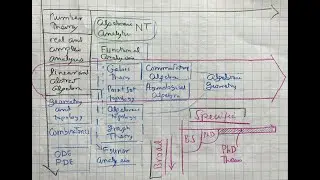 Number
Theory
Algebraic NT
Analytic
real and
complex
analysis
Functional
Analysis
Linear and
abstract
Algebra
Galois
Theory
Commutative
Algebra
Algebraic
Geometry
Point Set
topology
Homological
Algebra
Geometry
and
topology
Algebraic
topology
Specific
Combinatorics
Graph
Theory
Broad
BS
PhD
PhD
Thesis
ODE
PDE
Fourier
Analysis